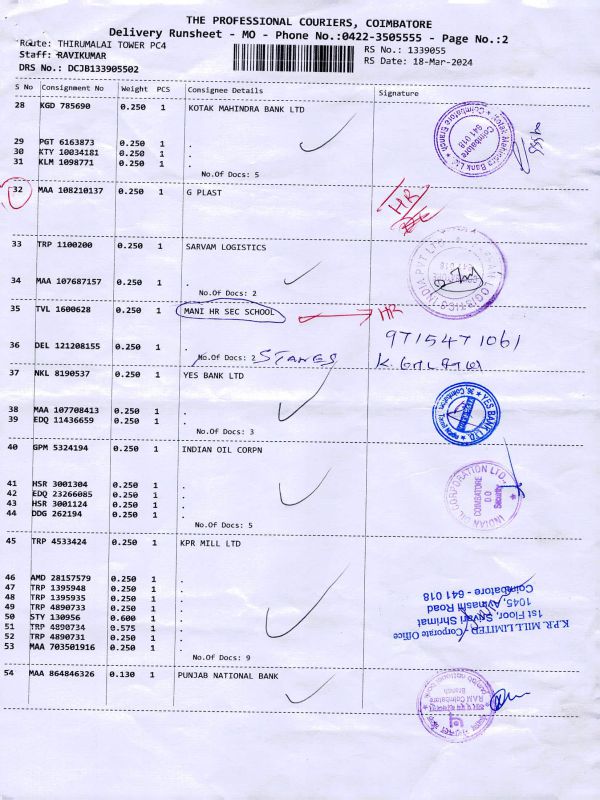 THE PROFESSIONAL COURIERS, COIMBATORE
Delivery Runsheet - MO - Phone No.:0422-3505555 - Page No.:2
Route: THIRUMALAI TOWER PC4
RS No.: 1339055
Staff: RAVIKUMAR
RS Date: 18-Mar-2024
DRS No.: DCJB133905502
S No Consignment No Weight PCS Consignee Details Signature
28 KGD 785690 0.250 1 KOTAK MAHINDRA BANK LTD
29 PGT 6163873 0.250 1 .
30 KTY 10034181 0.250 1 .
31 KLM 1098771 0.250 1 .
No.Of Docs: 5
32 MAA 108210137 0.250 1 G PLAST HR
33 TRP 1100200 0.250 1 SARVAM LOGISTICS
34 MAA 107687157 0.250 1 .
No.Of Docs: 2
35 TVL 1600628 0.250 1 MANI HR SEC SCHOOL HR
9715471061
36 DEL 121208155 0.250 1 .
No.Of Docs: 2 STANES
37 NKL 8190537 0.250 1 YES BANK LTD
38 MAA 107708413 0.250 1 .
39 EDQ 11436659 0.250 1 .
No.Of Docs: 3
YES BANK LTD
40 GPM 5324194 0.250 1 INDIAN OIL CORPN
41 HSR 3001304 0.250 1 .
42 EDQ 23266085 0.250 1 .
43 HSR 3001124 0.250 1 .
44 DDG 262194 0.250 1 .
No.Of Docs: 5
INDIAN OIL CORPORATION LTD.
COIMBATORE
D O
Security
45 TRP 4533424 0.250 1 KPR MILL LTD
46 AMD 28157579 0.250 1 .
47 TRP 1395948 0.250 1 .
48 TRP 1395935 0.250 1 .
49 TRP 4890733 0.250 1 .
50 STY 130956 0.600 1 .
51 TRP 4890734 0.575 1 .
52 TRP 4890731 0.250 1 .
53 MAA 703501916 0.250 1 .
No.Of Docs: 9
K.P.R. MILL LIMITED - Corporate Office
1st Floor, Srivari Shrimat
1045, Avinashi Road
Coimbatore - 641 018
54 MAA 864846326 0.130 1 PUNJAB NATIONAL BANK